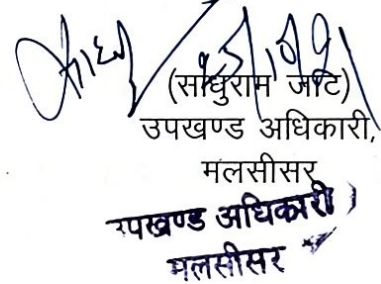 (साधुराम जाट)
उपखण्ड अधिकारी,
मलसीसर
उपखण्ड अधिकारी
मलसीसर